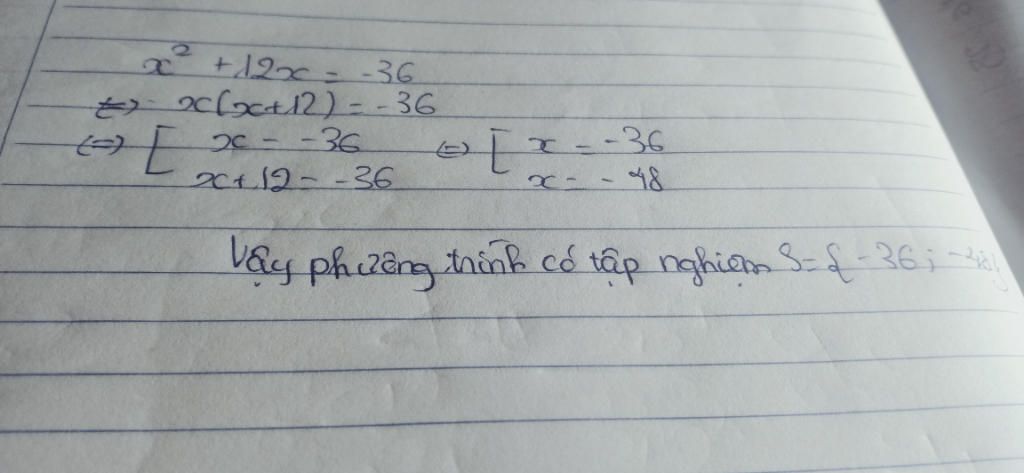 x² + 12x = -36
⇔ x(x+12) = -36
⇔ [ x = -36 ⇔ [ x = -36
x+12 = -36 x = -48
Vậy phương trình có tập nghiệm S = { -36; -48}